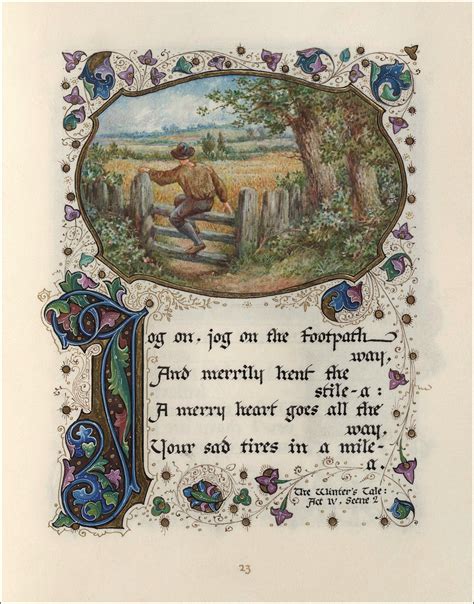 Jog on, jog on the footpath
way,
And merrily hent the
stile-a:
A merry heart goes all the
way,
Your sad tires in a mile-
a.
The Winter's Tale:
Act IV. Scene 2
23